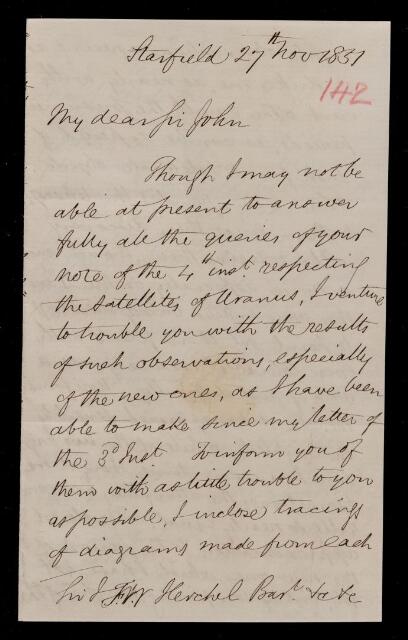 Starfield 27th Nov 1851
142
My dear Sir John
Though I may not be
able at present to answer
fully all the queries of your
note of the 4th inst. respecting
the satellites of Uranus, I venture
to trouble you with the results
of such observations, especially
of the new ones, as I have been
able to make since my letter of
the 3d Inst. To inform you of
them with as little trouble to you
as possible, I inclose tracings
of diagrams made from each
Sir J F W Herschel Bart. &c &c